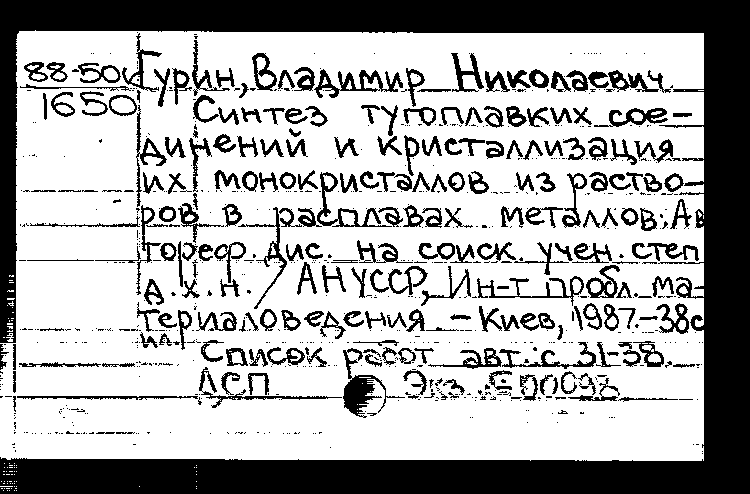 88-50к Гурин, Владимир Николаевич
1650 Синтез тугоплавких сое-
динений и кристаллизация
их монокристаллов из раство-
ров в расплавах металлов: Ав
тореф. дис. на соиск. учен. степ
д.х.н. / АН УССР, Ин-т пробл. ма-
териаловедения. - Киев, 1987.-38с
ил.
Список работ авт.: с. 31-38.
ДСП Экз. №00098